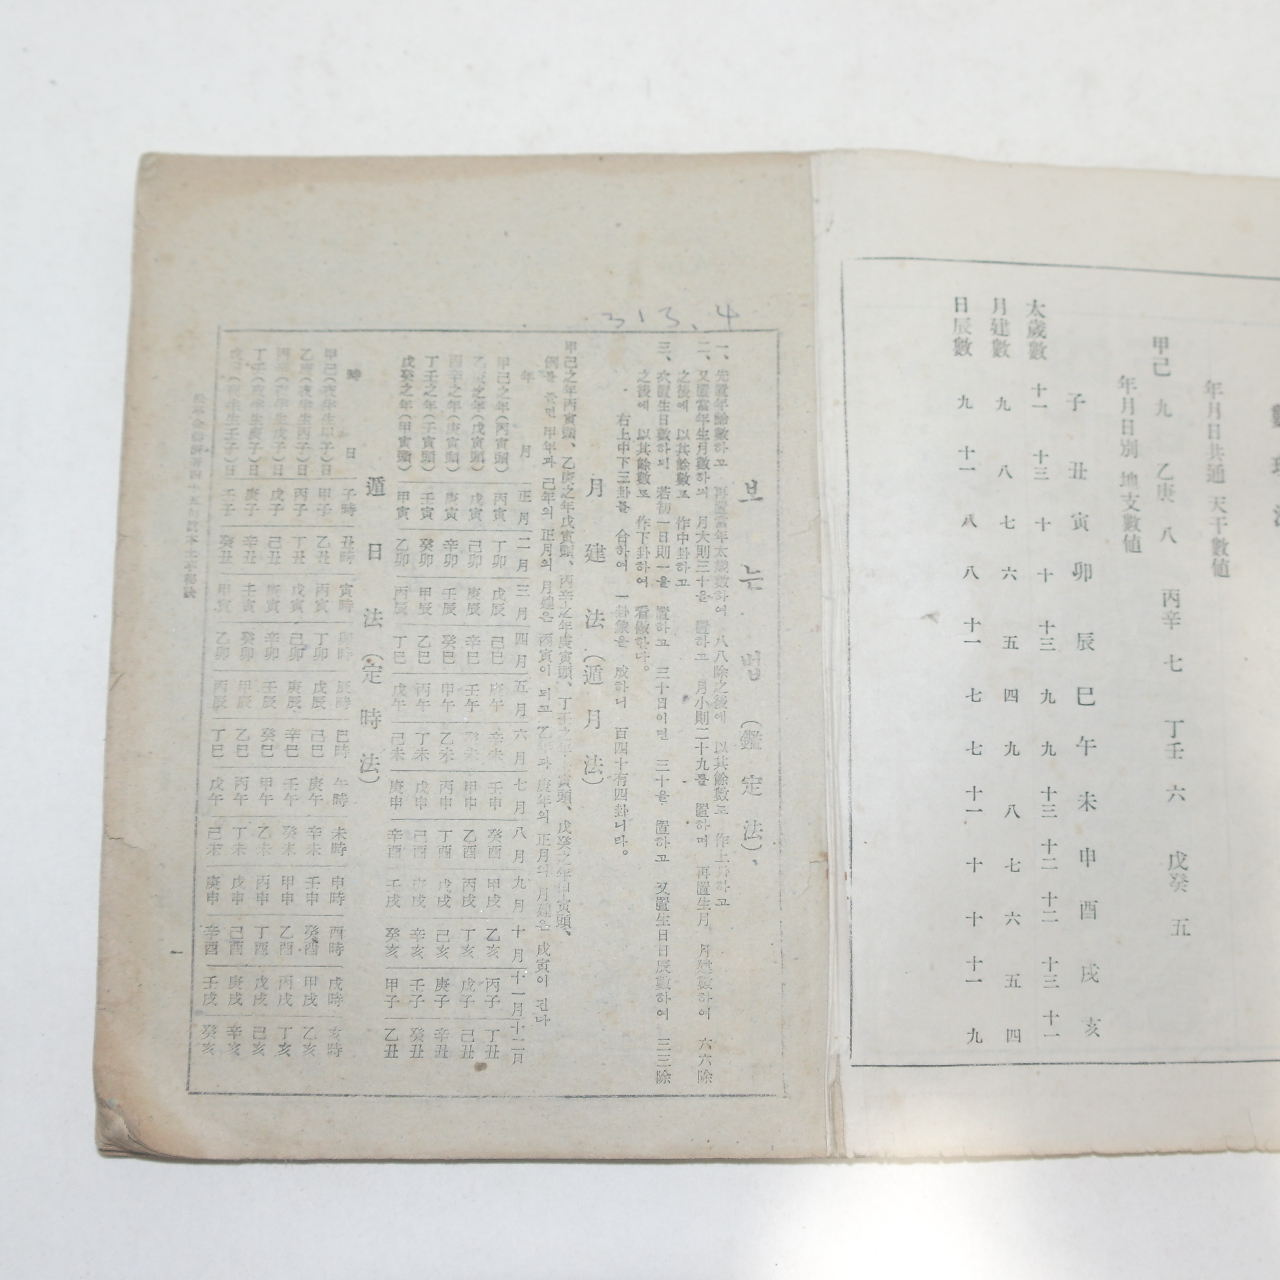 年月日共通 天干數値
甲己 九 乙庚 八 丙辛 七 丁壬 六 戊癸 五
年月日別 地支數値
子 丑 寅 卯 辰 巳 午 未 申 酉 戌 亥
太歲數 十一 十三 十 十 十三 九 九 十三 十二 十二 十三 十一
月建數 九 八 七 六 五 四 九 八 七 六 五 四
日辰數 九 十一 八 八 十一 七 七 十一 十 十 十一 九
313.4
보는법 (鑑定法)、
一、先置年餘數하고 再置當年太歲數하여 八八除之後에 以其餘數로 作上卦하고
二、又置當年生月數하되 月大則三十을 置하고 月小則二十九를 置하며 再置生月 月建數하여 六六除
之後에 以其餘數로 作中卦하고
三、次置生日數하되 若初一日則一을 置하고 三十日이면 三十을 置하고 又置生日日辰數하여 三三除
之後에 以其餘數로 作下卦하여 看做한다。
右上中下三卦를 合하여 一卦象을 成하니 百四十有四卦니라。
月建法 (遁月法)
甲己之年丙寅頭、乙庚之年戊寅頭、丙辛之年庚寅頭、丁壬之年壬寅頭、戊癸之年甲寅頭、
例를 들면 甲年과 己年의 正月의 月建은 丙寅이 되고 乙年과 庚年의 正月의 月建은 戊寅이 된다
年 月 正月 二月 三月 四月 五月 六月 七月 八月 九月 十月 十一月 十二月
甲己之年(丙寅頭) 丙寅 丁卯 戊辰 己巳 庚午 辛未 壬申 癸酉 甲戌 乙亥 丙子 丁丑
乙庚之年(戊寅頭) 戊寅 己卯 庚辰 辛巳 壬午 癸未 甲申 乙酉 丙戌 丁亥 戊子 己丑
丙辛之年(庚寅頭) 庚寅 辛卯 壬辰 癸巳 甲午 乙未 丙申 丁酉 戊戌 己亥 庚子 辛丑
丁壬之年(壬寅頭) 壬寅 癸卯 甲辰 乙巳 丙午 丁未 戊申 己酉 庚戌 辛亥 壬子 癸丑
戊癸之年(甲寅頭) 甲寅 乙卯 丙辰 丁巳 戊午 己未 庚申 辛酉 壬戌 癸亥 甲子 乙丑
遁日法 (定時法)
時 日 子時 丑時 寅時 卯時 辰時 巳時 午時 未時 申時 酉時 戌時 亥時
甲己(夜半生甲子)日 甲子 乙丑 丙寅 丁卯 戊辰 己巳 庚午 辛未 壬申 癸酉 甲戌 乙亥
乙庚(夜半生丙子)日 丙子 丁丑 戊寅 己卯 庚辰 辛巳 壬午 癸未 甲申 乙酉 丙戌 丁亥
丙辛(夜半生戊子)日 戊子 己丑 庚寅 辛卯 壬辰 癸巳 甲午 乙未 丙申 丁酉 戊戌 己亥
丁壬(夜半生庚子)日 庚子 辛丑 壬寅 癸卯 甲辰 乙巳 丙午 丁未 戊申 己酉 庚戌 辛亥
戊癸(夜半生壬子)日 壬子 癸丑 甲寅 乙卯 丙辰 丁巳 戊午 己未 庚申 辛酉 壬戌 癸亥
一